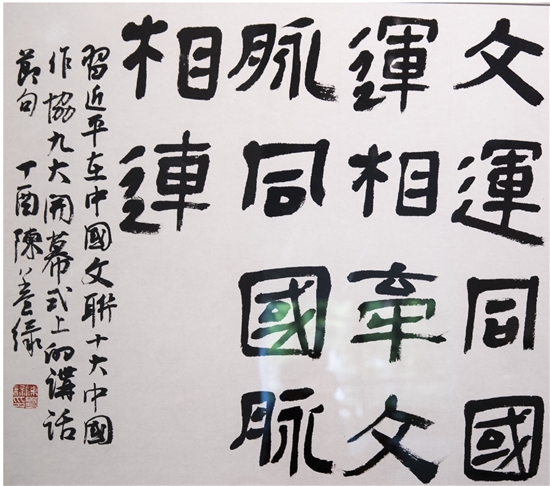 文運同國
運相牵文
脉同國脉
相連
習近平在中國文聯十大中國
作協九大開幕式上的講話
節句 丁酉 陳